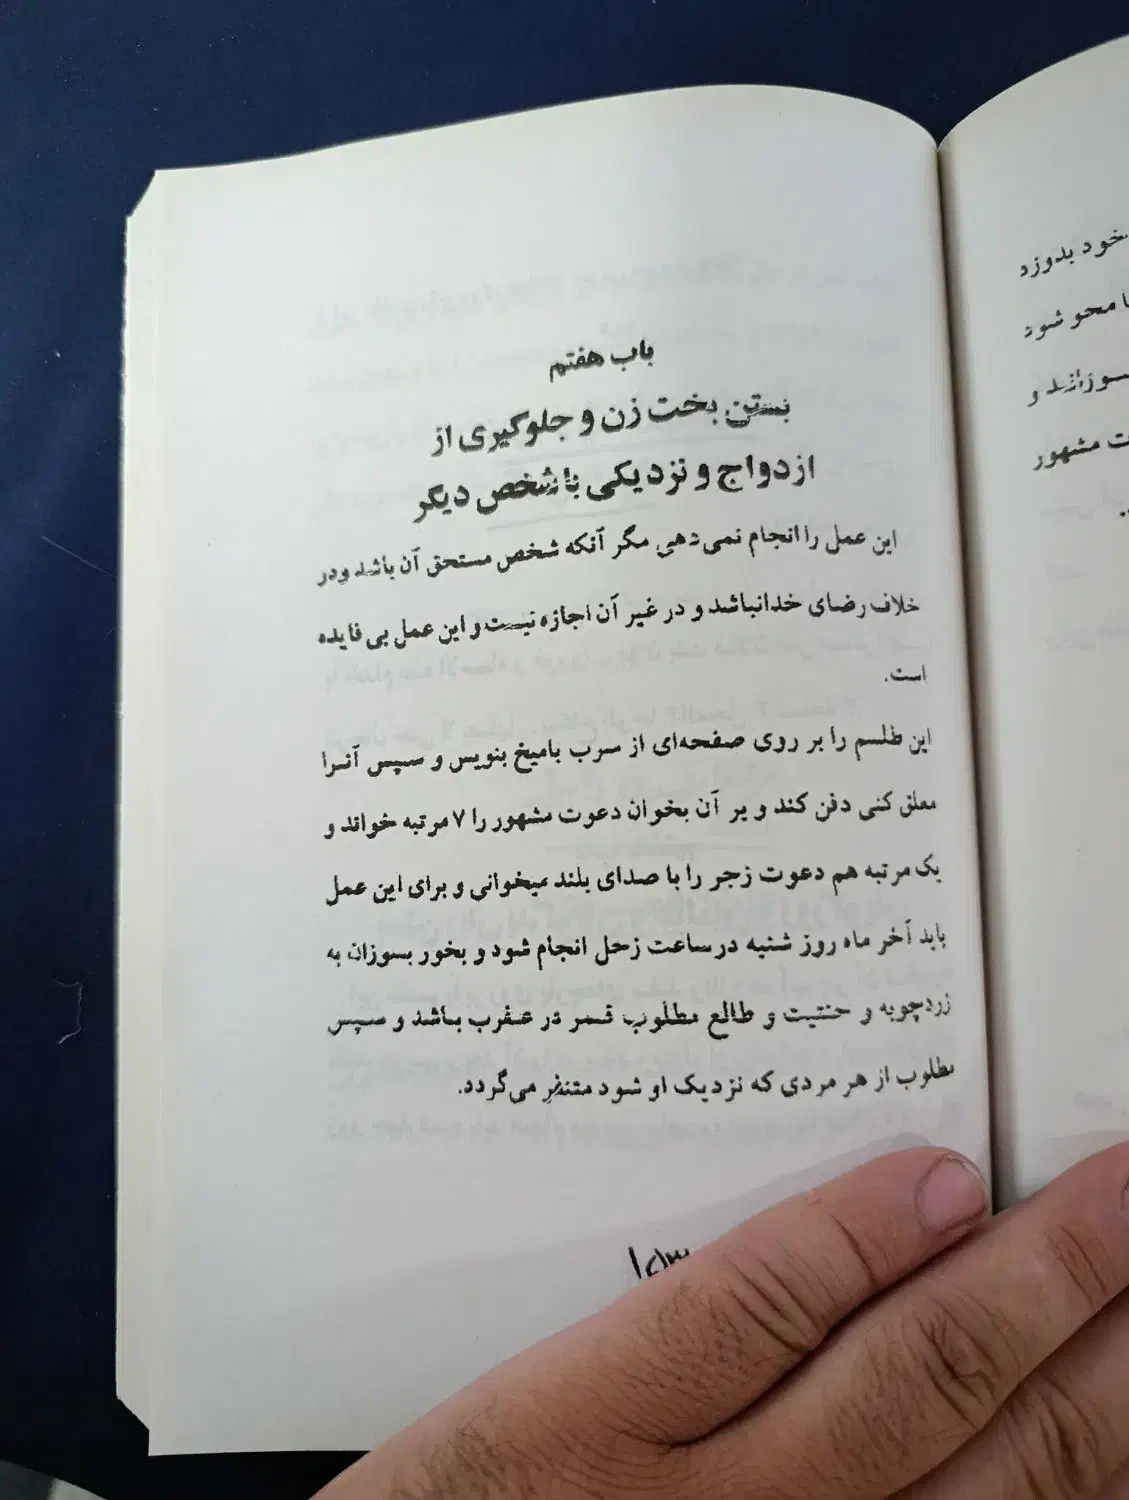 باب هفتم
بستن بخت زن و جلوگیری از
ازدواج و نزدیکی با شخص دیگر
این عمل را انجام نمی‌دهی مگر آنکه شخص مستحق آن باشد ودر
خلاف رضای خدانباشد و در غیر آن اجازه نیست و این عمل بی فایده
است.
این طلسم را بر روی صفحه‌ای از سرب بامیخ بنویس و سپس آنرا
معلق کنی دفن کند و بر آن بخوان دعوت مشهور را ۷ مرتبه خواند و
یک مرتبه هم دعوت زجر را با صدای بلند میخوانی و برای این عمل
باید آخر ماه روز شنبه درساعت زحل انجام شود و بخور بسوزان به
زردچوبه و حنتیت و طالع مطلوب قمر در عقرب باشد و سپس
مطلوب از هر مردی که نزدیک او شود متنفر می‌گردد.
خود بدوزد
محو شود
و
مشهور